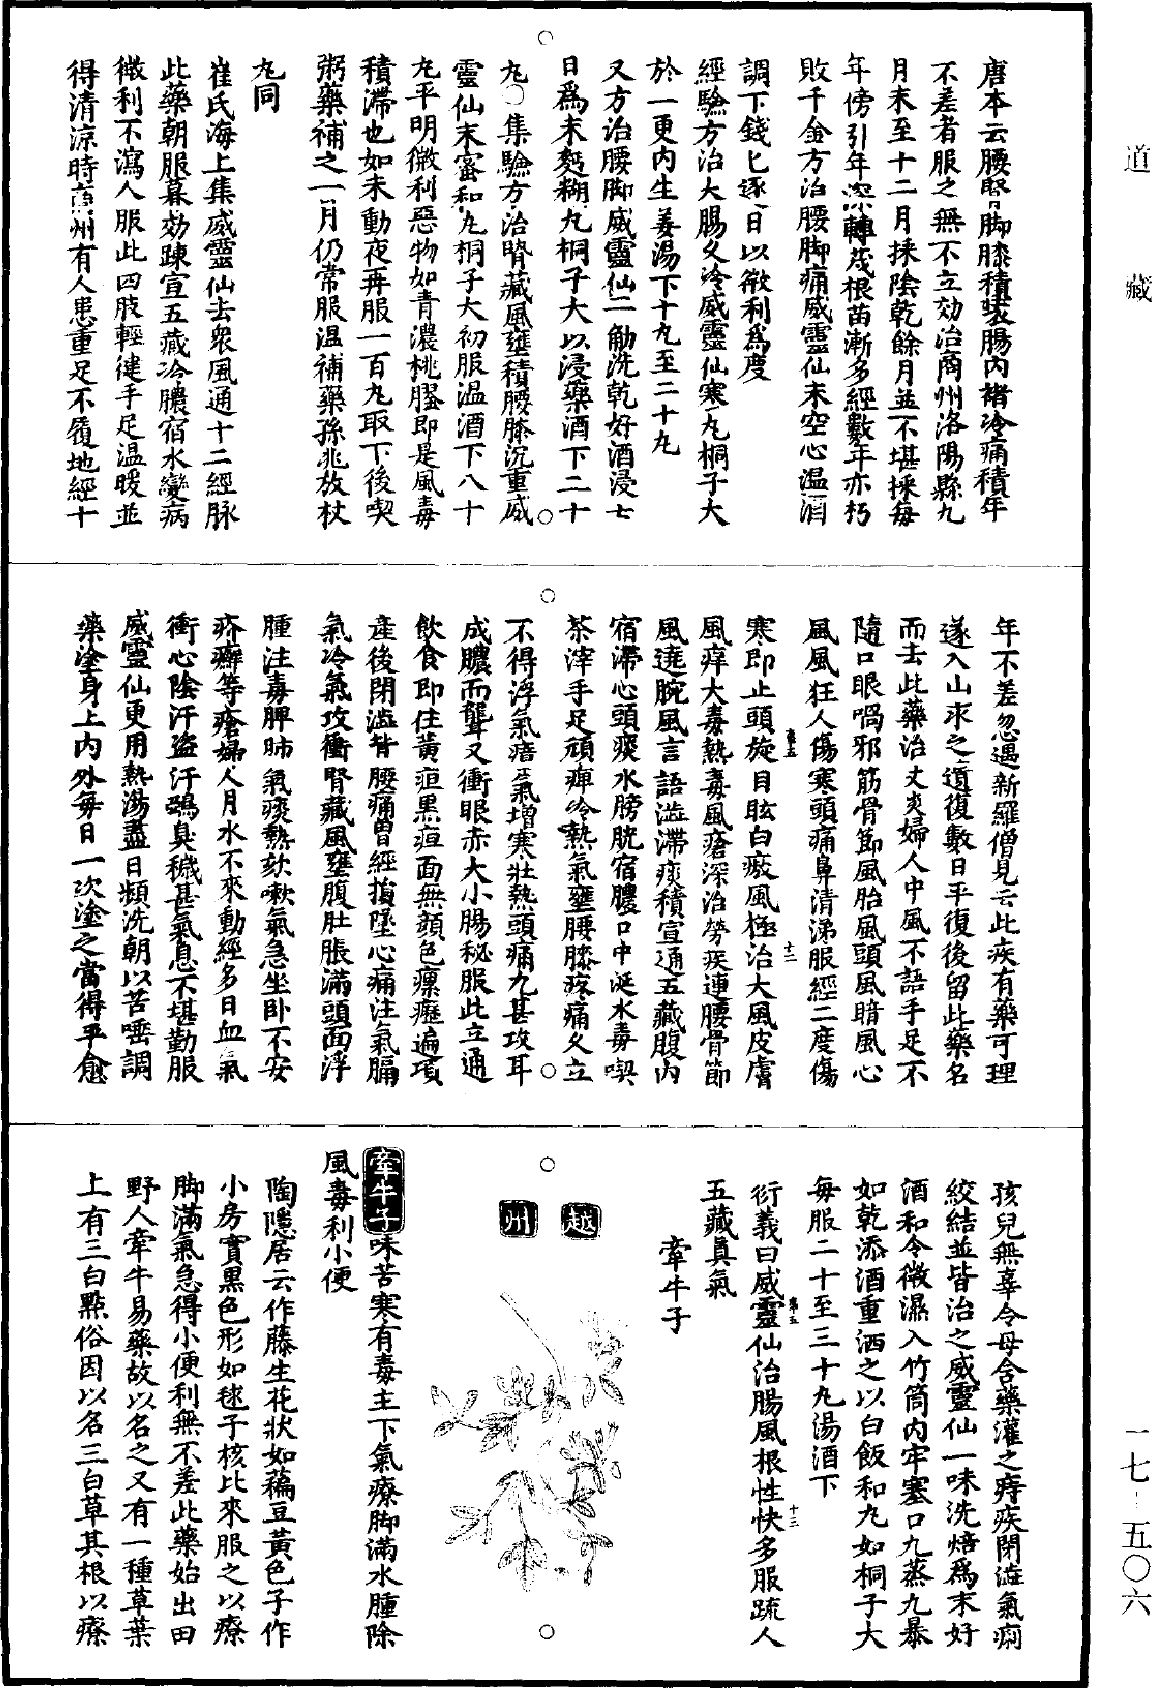 道藏
一七－五〇六
唐本云腰腎脚膝積聚腸內諸冷痛積年
不差者服之無不立効治商州洛陽縣九
月末至十二月採陰乾餘月並不堪採每
年傍引年深轉茂根苗漸多經數年亦朽
敗千金方治腰脚痛威靈仙末空心溫酒
調下錢匕逐日以微利爲度
經驗方治大腸久冷威靈仙寒丸桐子大
於一更內生姜湯下十丸至二十丸
又方治腰脚威靈仙二觔洗乾好酒浸七
日爲末麪糊丸桐子大以浸藥酒下二十
丸〇集驗方治腎藏風壅積腰膝沉重威
靈仙末蜜和丸桐子大初服溫酒下八十
丸平明微利惡物如青濃桃膠即是風毒
積滯也如未動夜再服一百丸取下後喫
粥藥補之一月仍常服溫補藥孫兆放杖
丸同
崔氏海上集威靈仙去衆風通十二經脉
此藥朝服暮効踈宣五藏冷膿宿水變病
微利不瀉人服此四肢輕健手足溫暖並
得清涼時商州有人患重足不履地經十
年不差忽遇新羅僧見云此疾有藥可理
遂入山求之遺復數日平復後留此藥名
而去此藥治丈夫婦人中風不語手足不
隨口眼喎邪筋骨節風胎風頭風暗風心
風風狂人傷寒頭痛鼻清涕服經二度傷
寒即止頭旋目眩白癜風極治大風皮膚
風痒大毒熱毒風瘡深治勞疾連腰骨節
風遶腕風言語澁滯痰積宣通五藏腹內
宿滯心頭痰水膀胱宿膿口中涎水毒喫
茶滓手足頑痺冷熱氣壅腰膝疼痛久立
不得浮氣瘴氣增寒壯熱頭痛尤甚攻耳
成膿而聾又衝眼赤大小腸秘服此立通
飲食即住黃疸黑疸面無顏色瘰癧遍項
產後閉澁胷腰痛曽經損墜心痛注氣膈
氣冷氣攻衝腎藏風壅腹肚脹滿頭面浮
腫注毒脾肺氣痰熱欬嗽氣急坐卧不安
疥癬等瘡婦人月水不來動經多日血氣
衝心陰汗盜汗鵶臭穢甚氣息不堪勤服
威靈仙更用熱湯盡日頻洗朝以苦唾調
藥塗身上內外每日一次塗之當得平愈
孩兒無辜令母含藥灌之痔疾閉澁氣痢
絞結並皆治之威靈仙一味洗焙爲末好
酒和令微濕入竹筒內牢塞口九蒸九暴
如乾添酒重洒之以白飯和丸如桐子大
每服二十至三十丸湯酒下
衍義曰威靈仙治腸風根性快多服疏人
五藏眞氣
牽牛子
越州
牽牛子味苦寒有毒主下氣療脚滿水腫除
風毒利小便
陶隱居云作藤生花狀如藊豆黃色子作
小房實黑色形如毬子核比來服之以療
脚滿氣急得小便利無不差此藥始出田
野人牽牛易藥故以名之又有一種草葉
上有三白點俗因以名三白草其根以療